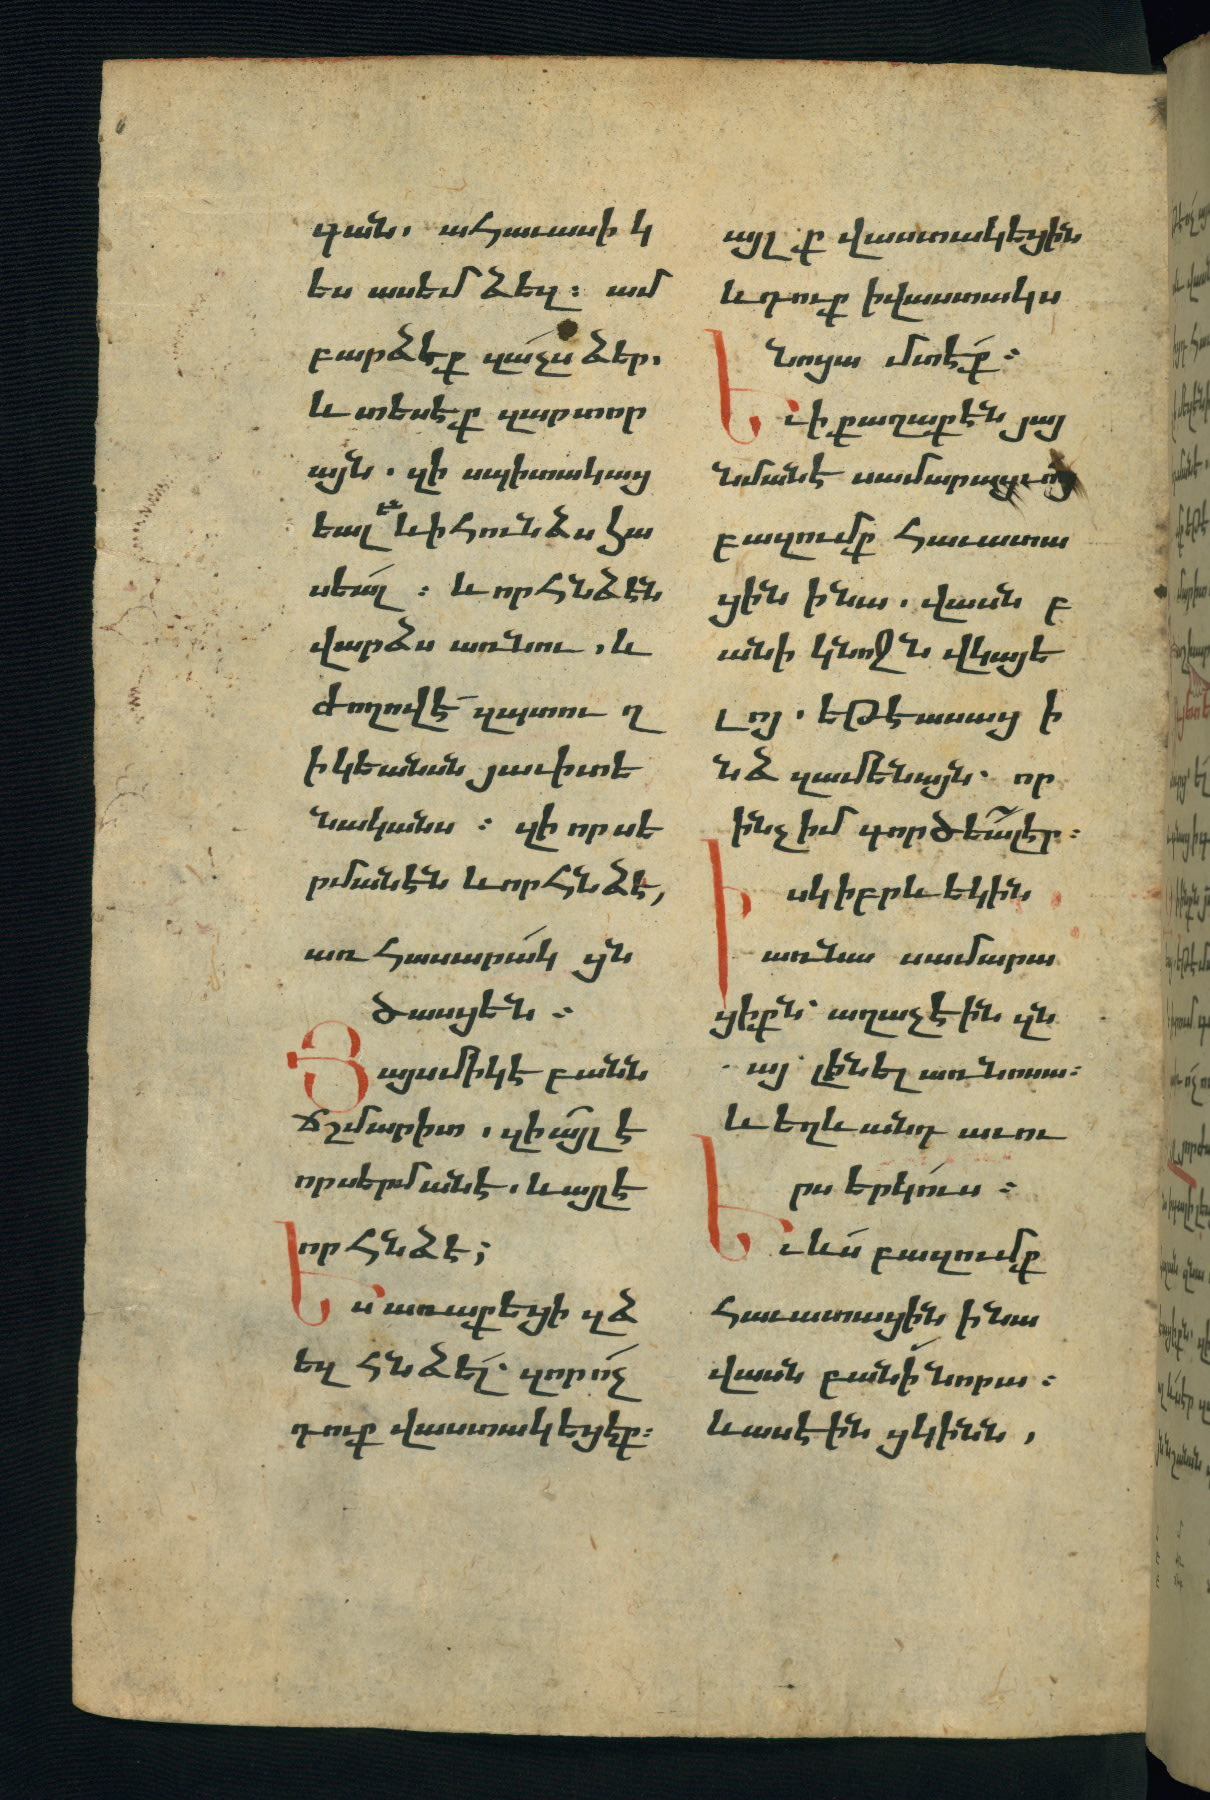 գան. ահաւասիկ
ես ասեմ ձեզ։ ամ
բարձէք զաչս ձեր.
և տեսէք զարտոր
այն. զի սպիտակաց
եալ են և ի հունձս հա
սեալ ։ և որ հնձէն
վարձս առնու, և
ժողովէ զպտու ղ
ի կեանսն յաւիտե
նականս ։ զի որ սե
րմանէն և որ հնձէ,
առ հասարակ ցն
ծասցեն ։
Յայսմիկ է բանն
ճշմարիտ, զի այլ է
որ սերմանէ. և այլ է
որ հնձէ;
Ես առաքեցի զձ
եզ հնձել՝ զոր ոչ
դուք վաստակեցէք։
այլ ք վաստակեցին
և դուք ի վաստակս
նոցա մտէք ։
Եւ ի քաղաքէն յայ
նմանէ սամարացւոց
բազումք հաւատա
ցին ի նա. վասն բ
անի կնոջն վկայե
լոյ. եթէ ասաց ի
նձ զամենայն. որ
ինչ իմ գործեալ էր։
Իսկ իբրև եկին
առ նա սամարա
ցիքն՝ աղաչէին զն
ա յլինել առ նոսա։
և եղև անդ աւու
րս երկուս ։
Եւ ևս բազումք
հաւատացին ի նա
վասն բանի նորա ։
և ասէին ցկինն,